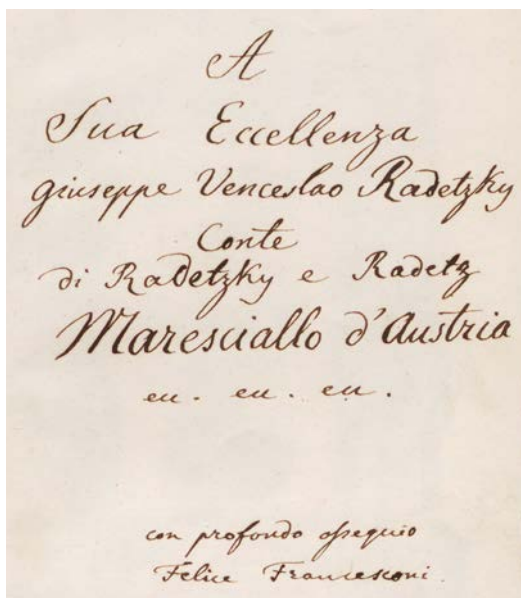 A
Sua Eccellenza
Giuseppe Venceslao Radetzky
Conte
di Radetzky e Radetz
Maresciallo d'Austria
ecc. ecc. ecc.
con profondo ossequio
Felice Francesconi.